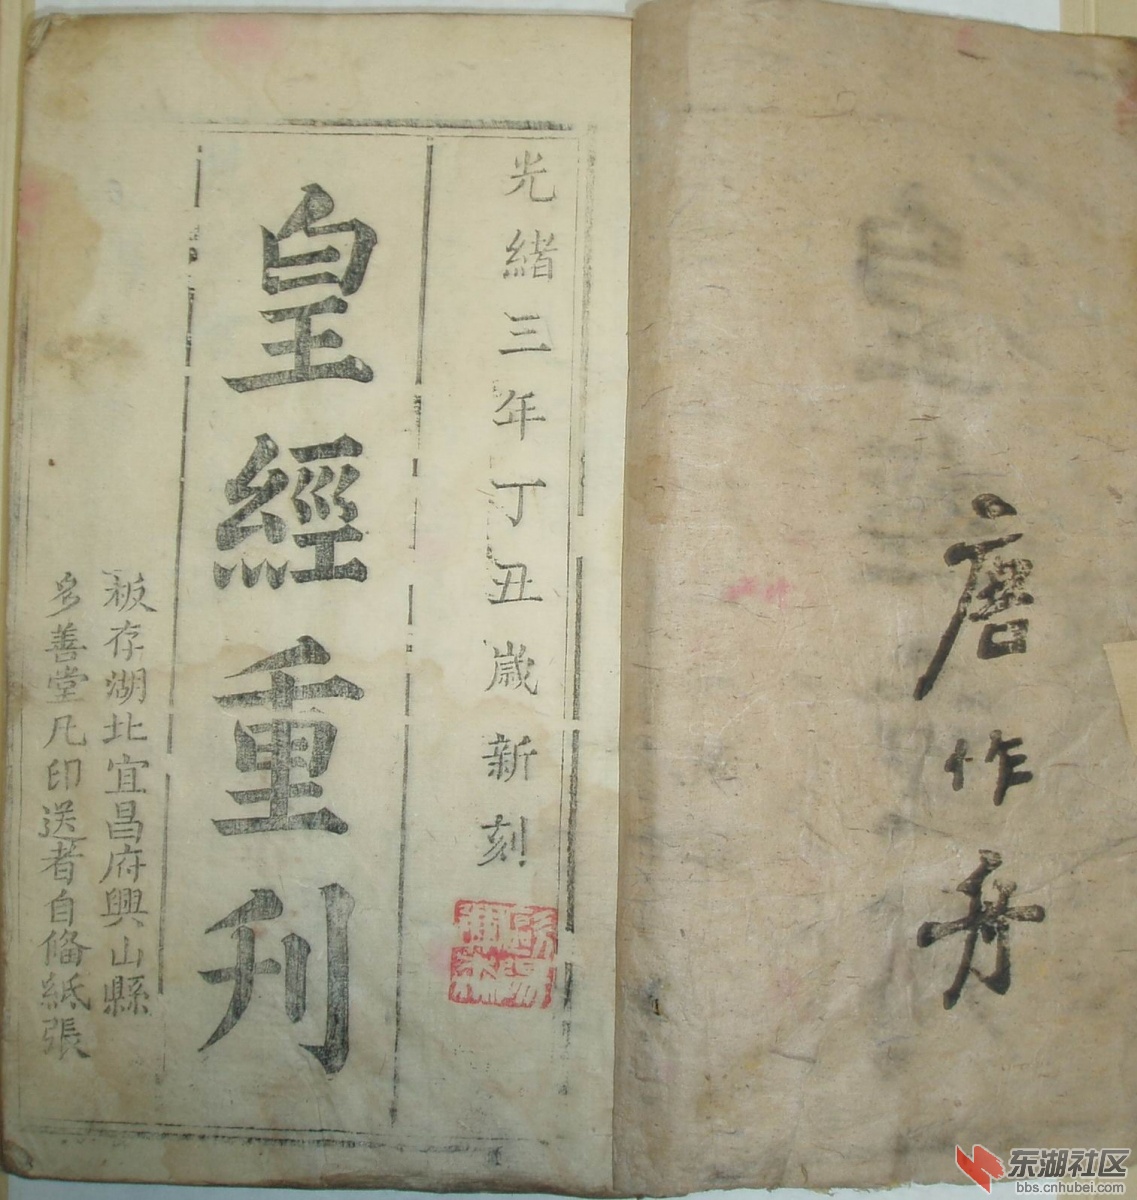 唐作舟
光緒三年丁丑歲新刻
皇經重刊
板存湖北宜昌府興山縣
多善堂凡印送者自俻紙張
东湖社区
bbs.cnhubei.com